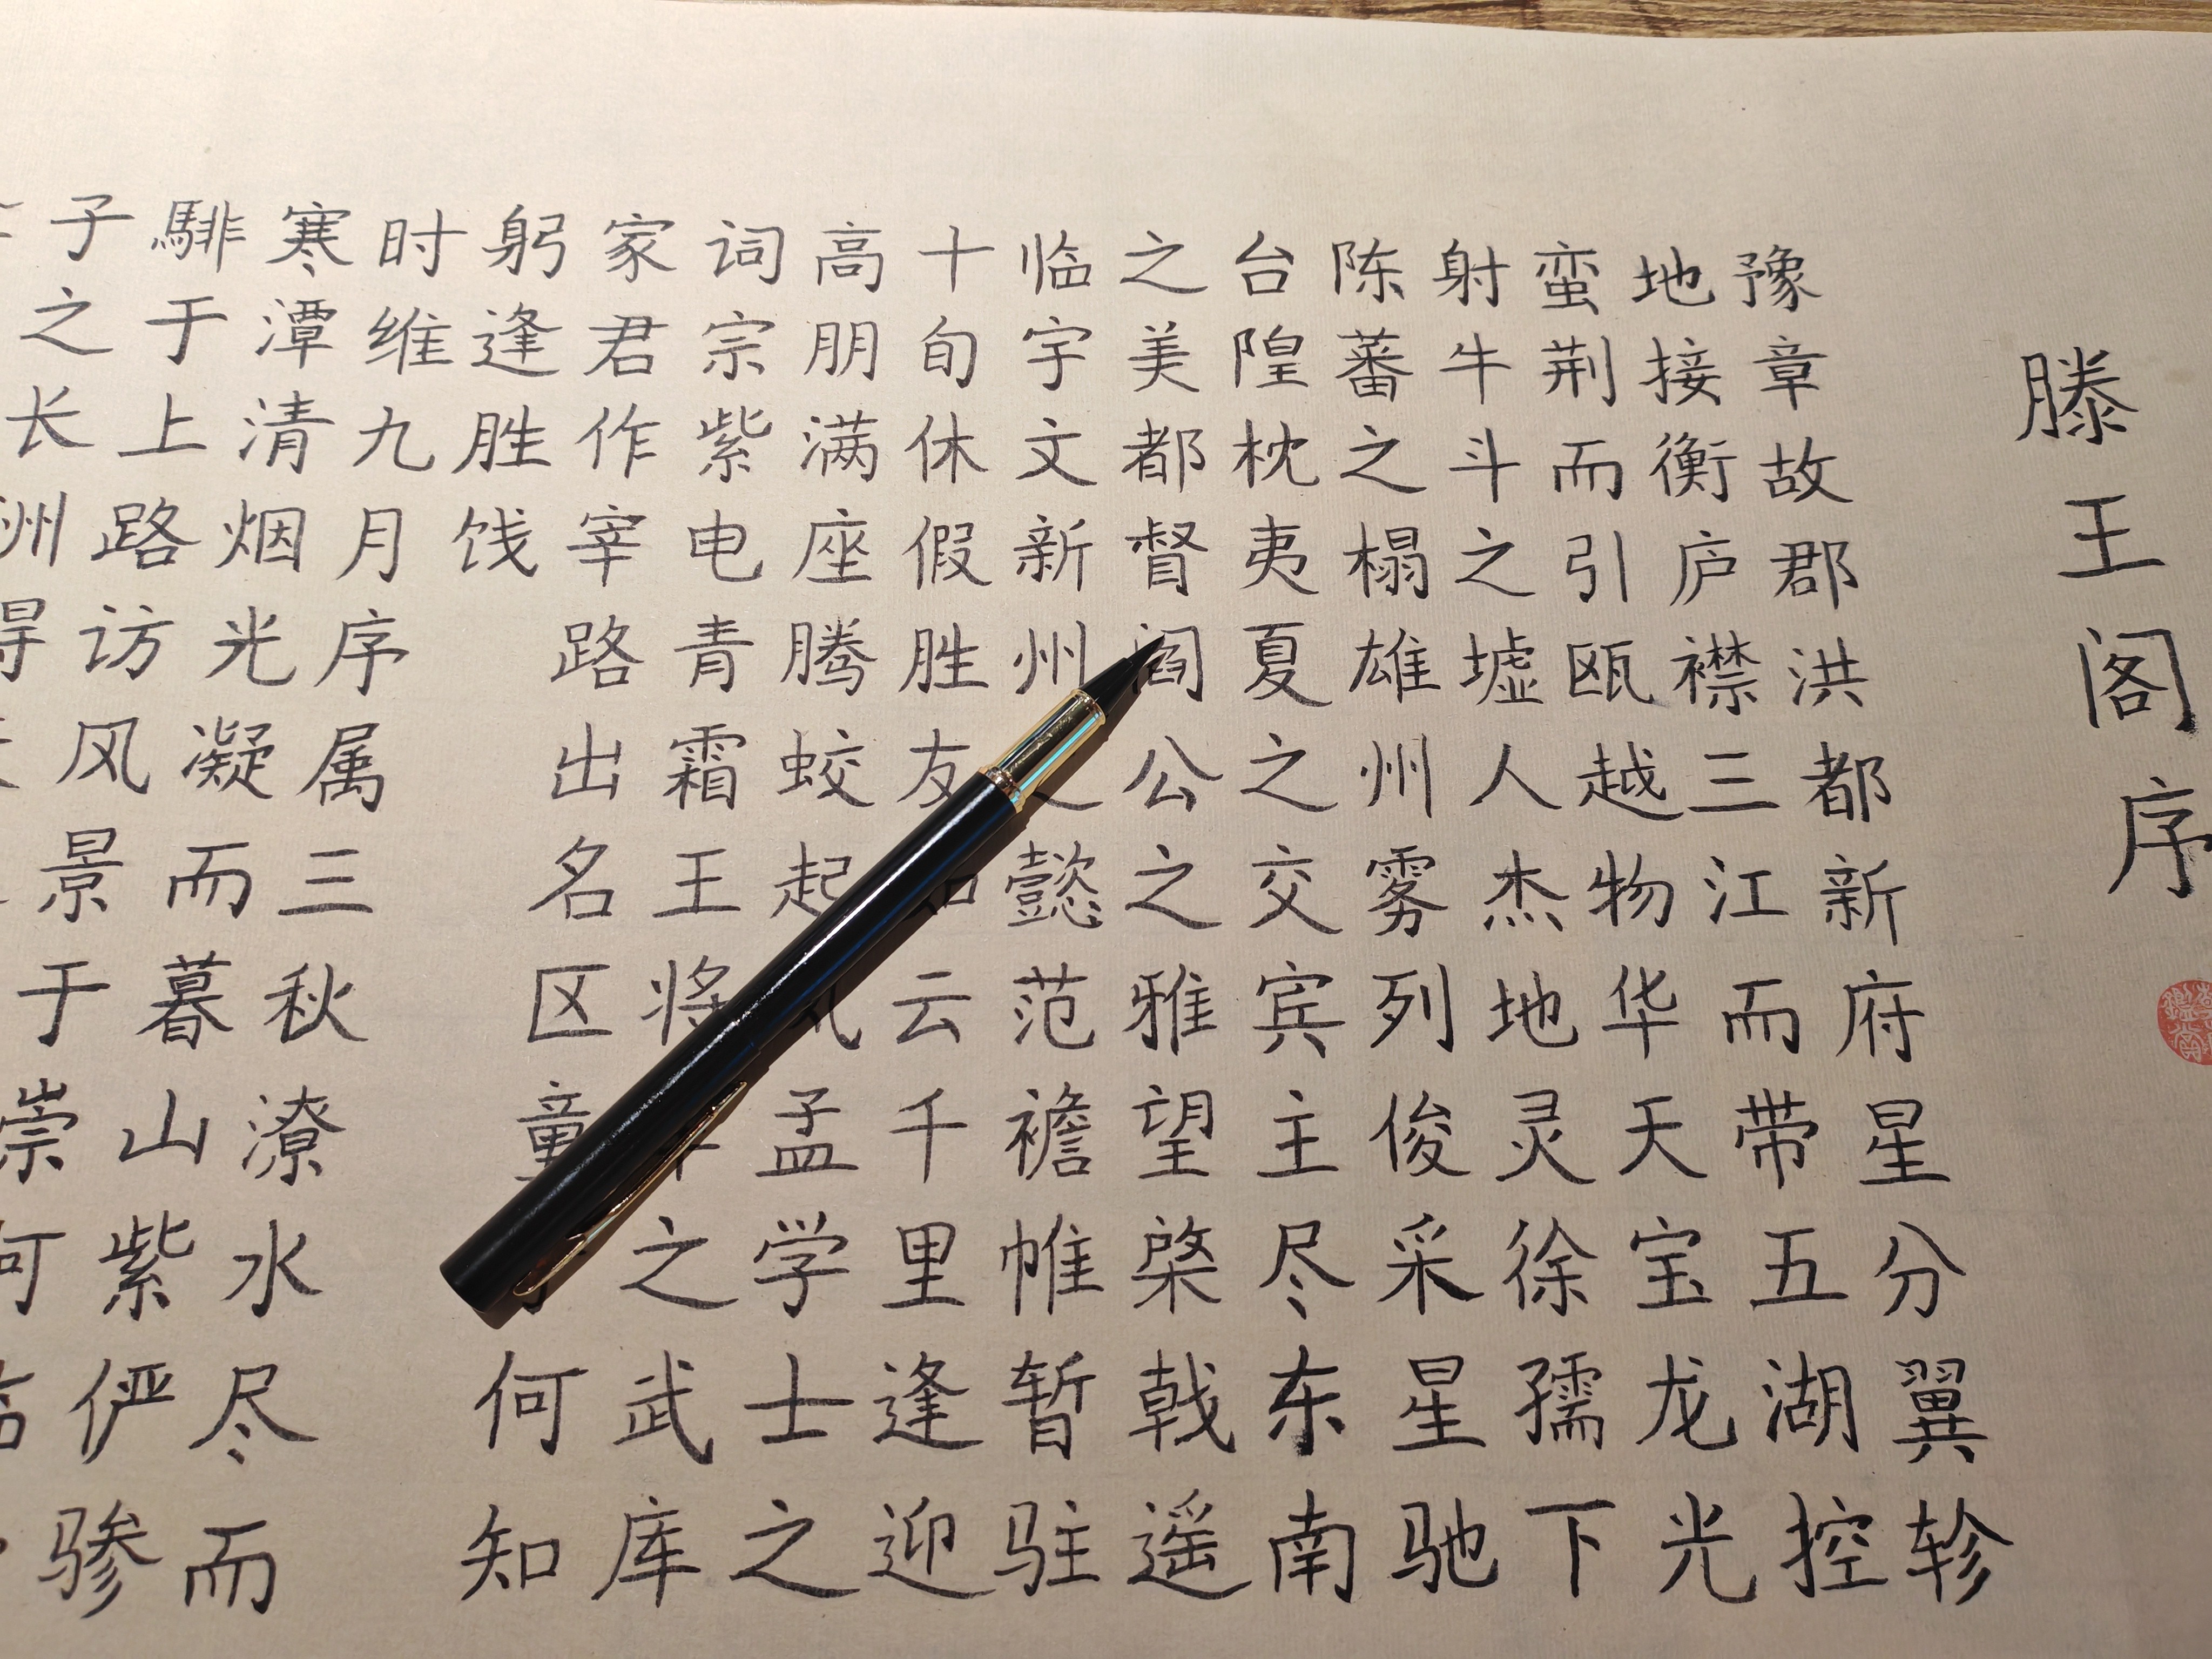 滕王阁序
豫章故郡洪都新府星分翼轸
地接衡庐襟三江而带五湖控
蛮荆而引瓯越物华天宝龙光
射牛斗之墟人杰地灵徐孺下
陈蕃之榻雄州雾列俊采星驰
台隍枕夷夏之交宾主尽东南
之美都督阎公之雅望棨戟遥
临宇文新州之懿范襜帷暂驻
十旬休假胜友云千里逢迎
高朋满座腾蛟起凤孟学士之
词宗紫电青霜王将之武库
家君作宰路出名区童何知
躬逢胜饯
时维九月序属三秋潦水尽而
寒潭清烟光凝而暮山紫俨骖
騑于上路访风景于崇
子之长洲得